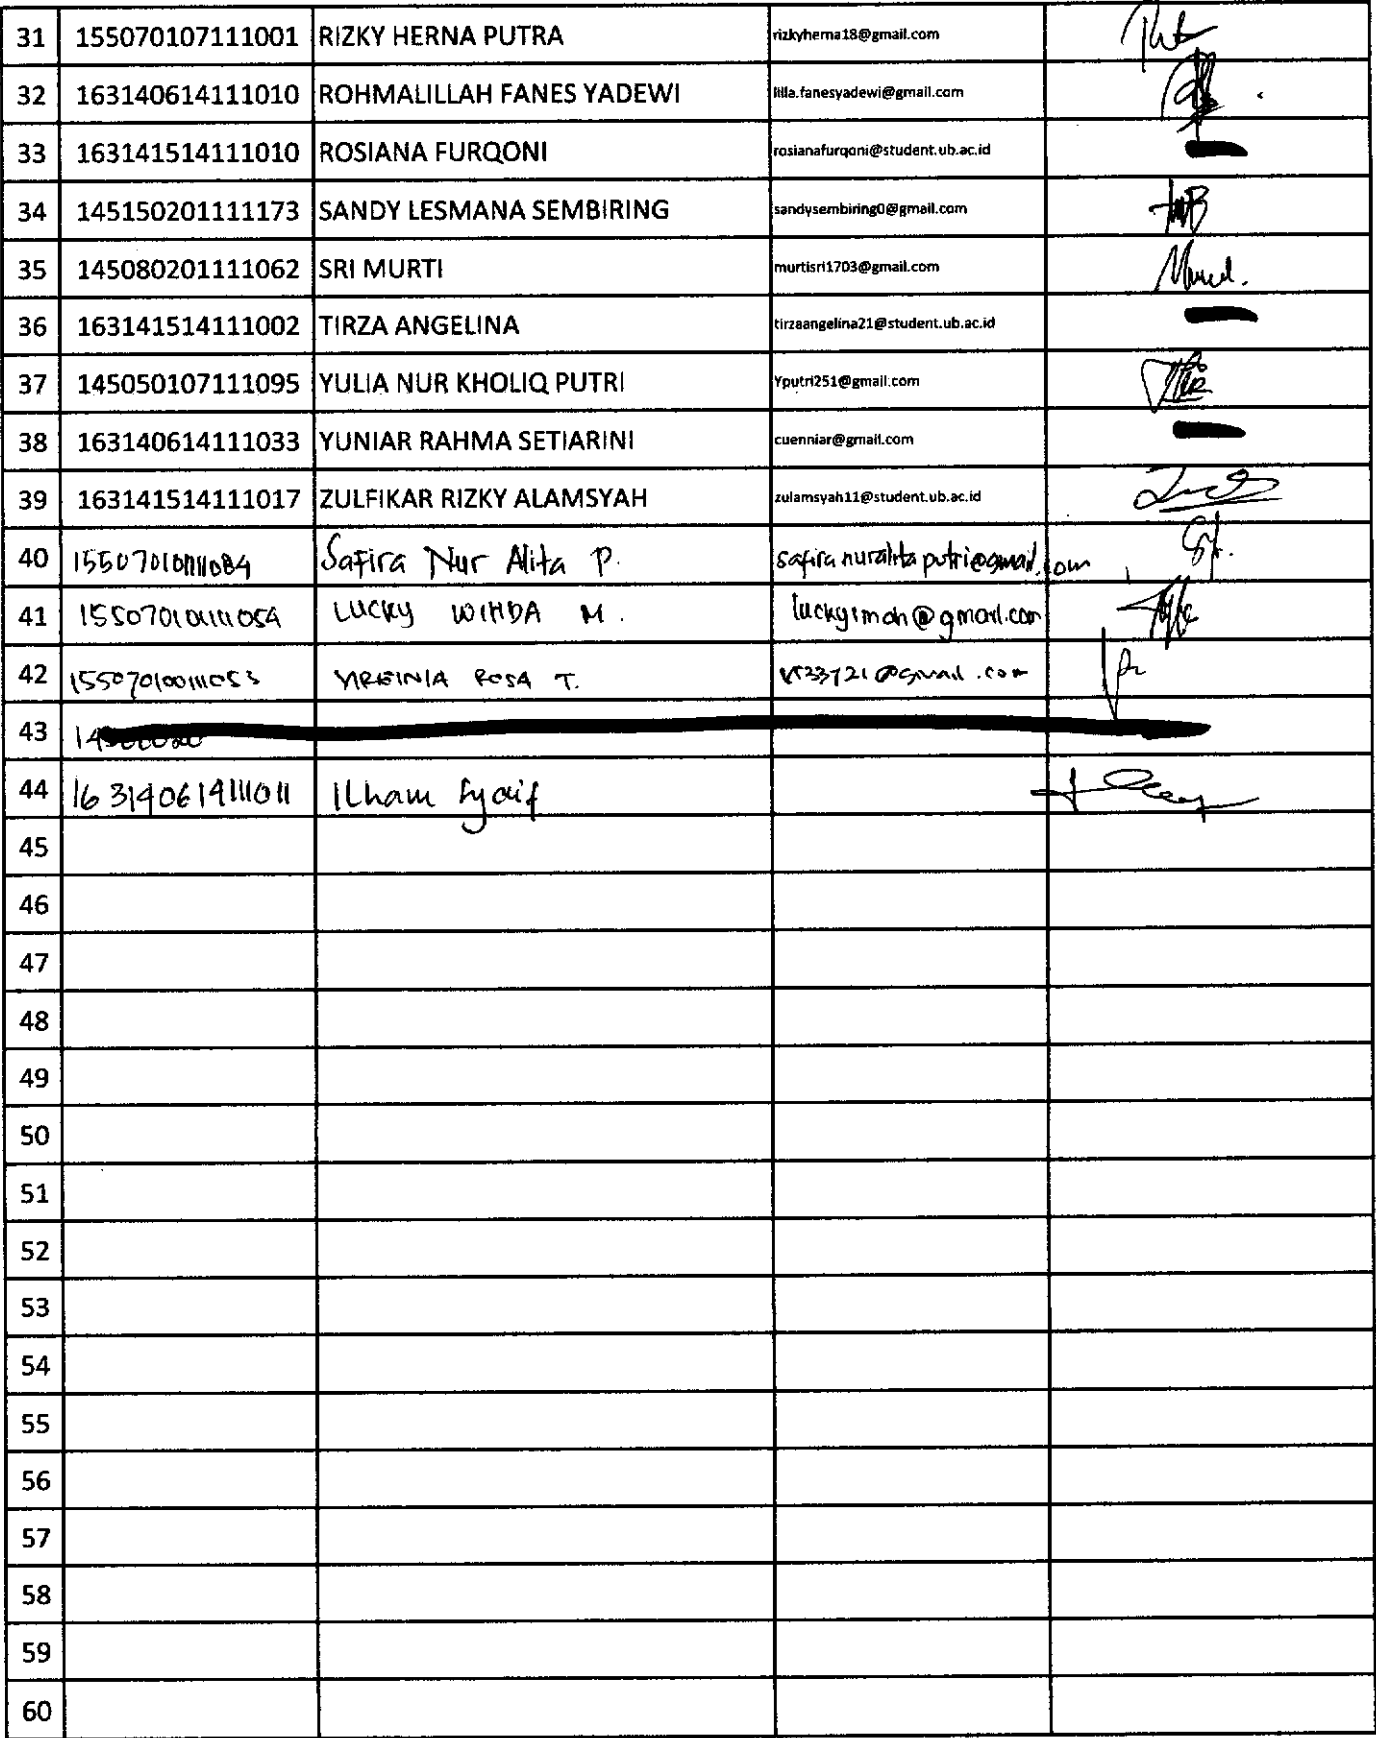 31 155070107111001 RIZKY HERNA PUTRA rizkyherna18@gmail.com
32 163140614111010 ROHMALILLAH FANES YADEWI lilla.fanesyadewi@gmail.com
33 163141514111010 ROSIANA FURQONI rosianafurqoni@student.ub.ac.id
34 145150201111173 SANDY LESMANA SEMBIRING sandysembiring0@gmail.com
35 145080201111062 SRI MURTI murtisri1703@gmail.com
36 163141514111002 TIRZA ANGELINA tirzaangelina21@student.ub.ac.id
37 145050107111095 YULIA NUR KHOLIQ PUTRI Yputri251@gmail.com
38 163140614111033 YUNIAR RAHMA SETIARINI cuenniar@gmail.com
39 163141514111017 ZULFIKAR RIZKY ALAMSYAH zulamsyah11@student.ub.ac.id
40 Safira Nur Alita P. safiranuralitaputri@gmail.com
41 LUCKY WIHDA M.
42 VIRGINIA ROSA T.
43
44 163140614111011 Ilham Syaif
45
46
47
48
49
50
51
52
53
54
55
56
57
58
59
60